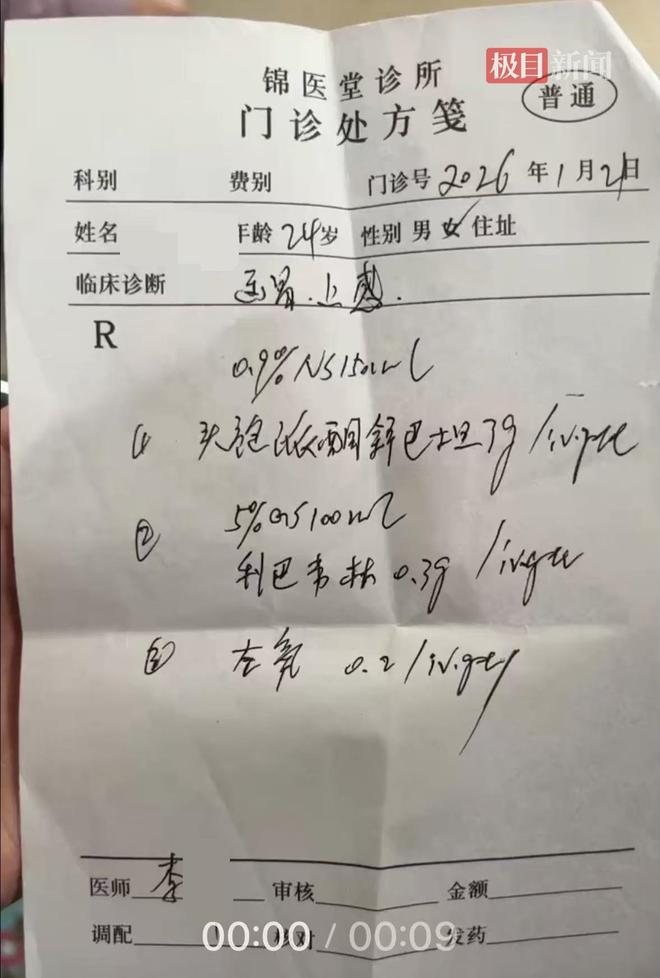 极目新闻
锦医堂诊所
门诊处方笺
普通
科别 费别 门诊号 2026 年 1 月 21日
姓名 年龄 24岁 性别 男 女 住址
临床诊断 上感.
R
0.9% NS 150ml
① 头孢哌酮舒巴坦 3g / iv.gtt
② 5% GS 100ml
利巴韦林 0.3g / iv.gtt
③ 左氧 0.2 / iv.gtt
医师 李 审核 金额
调配 核对 发药
00:00 / 00:09